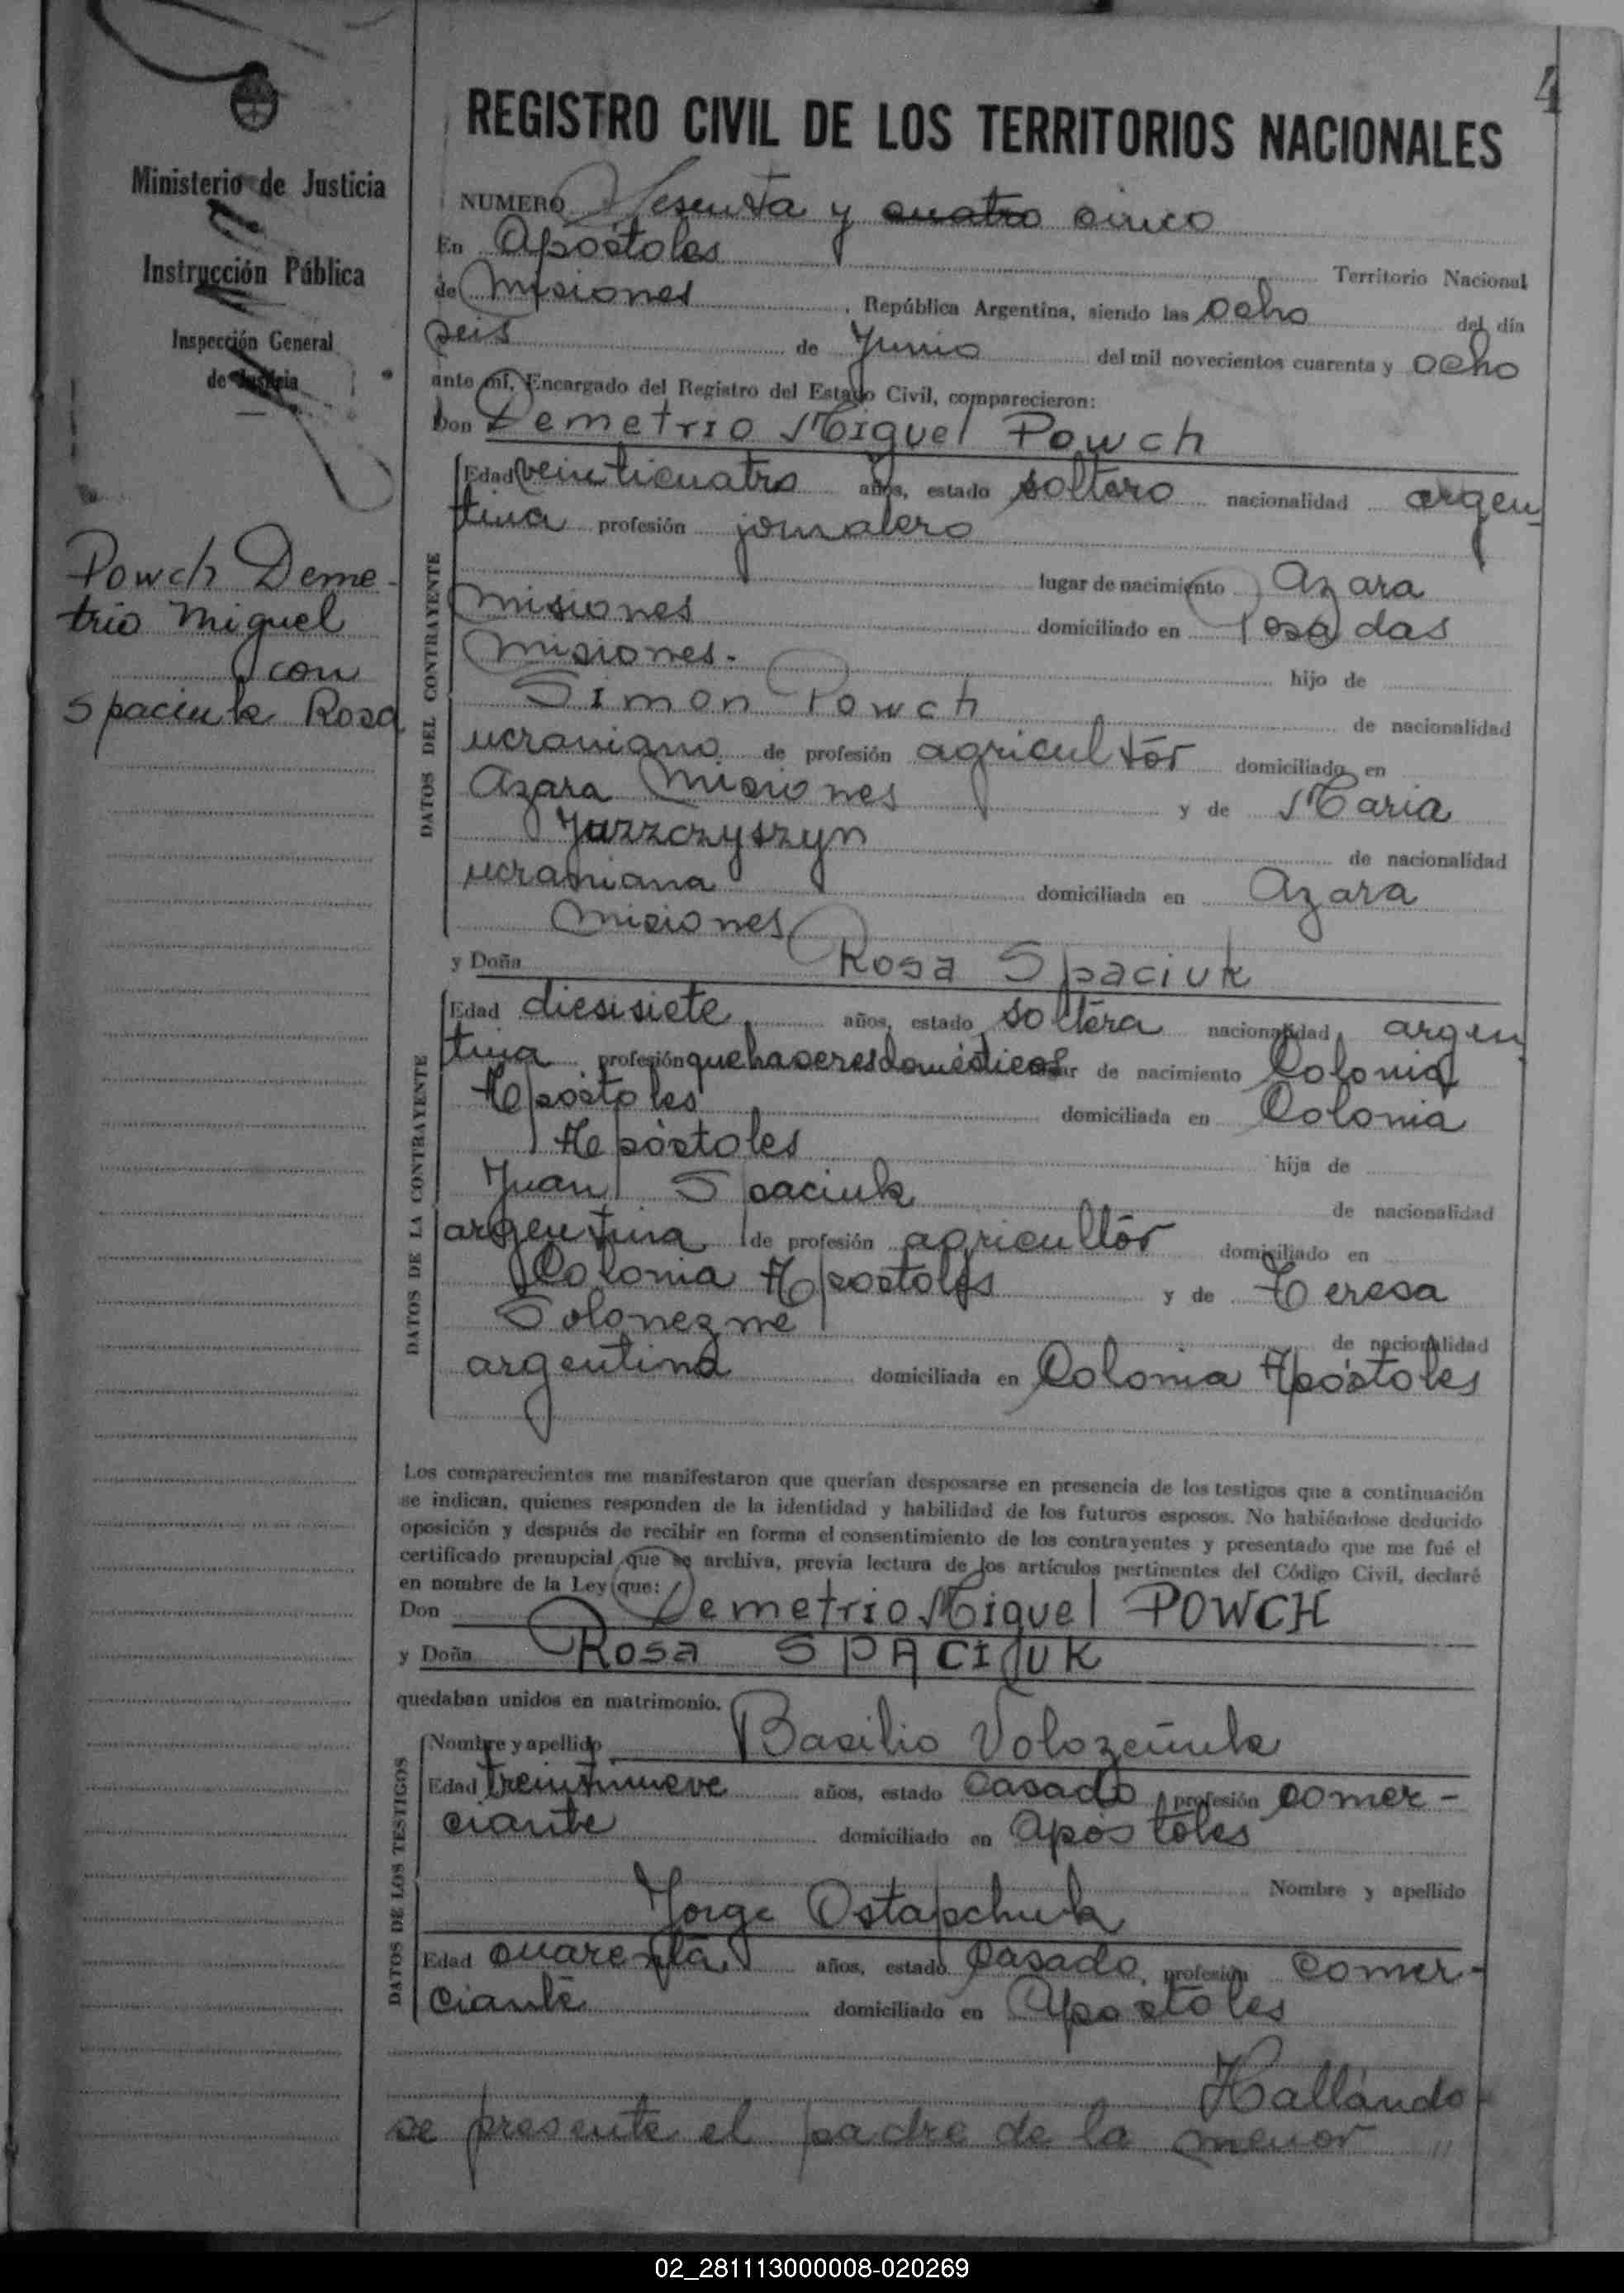 4
REGISTRO CIVIL DE LOS TERRITORIOS NACIONALES
Ministerio de Justicia
Instrucción Pública
Inspección General
de Justicia
NUMERO Sesenta y cuatro cinco
En Apóstoles Territorio Nacional
de Misiones, República Argentina, siendo las ocho del día
seis de Junio del mil novecientos cuarenta y ocho
ante mí, Encargado del Registro del Estado Civil, comparecieron:
Don Demetrio Miguel Powch
Powch Deme-
trio Miguel
con
Spaciuk Rosa
DATOS DEL CONTRAYENTE
Edad veinticuatro años, estado soltero nacionalidad argen
tina profesión jornalero
lugar de nacimiento Azara
Misiones domiciliado en Posadas
Misiones. hijo de
Simon Powch de nacionalidad
ucraniano de profesión agricultór domiciliado en
Azara Misiones y de Maria
de nacionalidad
ucraniana domiciliada en Azara
Misiones
y Doña Rosa Spaciuk
DATOS DE LA CONTRAYENTE
Edad diesisiete años, estado soltera nacionalidad argen
tina profesión quehaceres domésticos lugar de nacimiento Colonia
Apóstoles domiciliada en Colonia
Apóstoles hija de
Juan Spaciuk de nacionalidad
argentina de profesión agricultór domiciliado en
Colonia Apostoles y de Teresa
de nacionalidad
argentina domiciliada en Colonia Apóstoles
Los comparecientes me manifestaron que querían desposarse en presencia de los testigos que a continuación
se indican, quienes responden de la identidad y habilidad de los futuros esposos. No habiéndose deducido
oposición y después de recibir en forma el consentimiento de los contrayentes y presentado que me fué el
certificado prenupcial que se archiva, previa lectura de los artículos pertinentes del Código Civil, declaré
en nombre de la Ley que:
Don Demetrio Miguel POWCH
y Doña Rosa SPACIUK
quedaban unidos en matrimonio.
DATOS DE LOS TESTIGOS
Nombre y apellido Basilio
Edad treintinueve años, estado casado, profesión comer-
ciante domiciliado en Apóstoles
Nombre y apellido
Jorge Ostapchuk
Edad cuarenta años, estado casado, profesión comer-
ciante domiciliado en Apostoles
Hallándo-
se presente el padre de la menor "
02_281113000008-020269